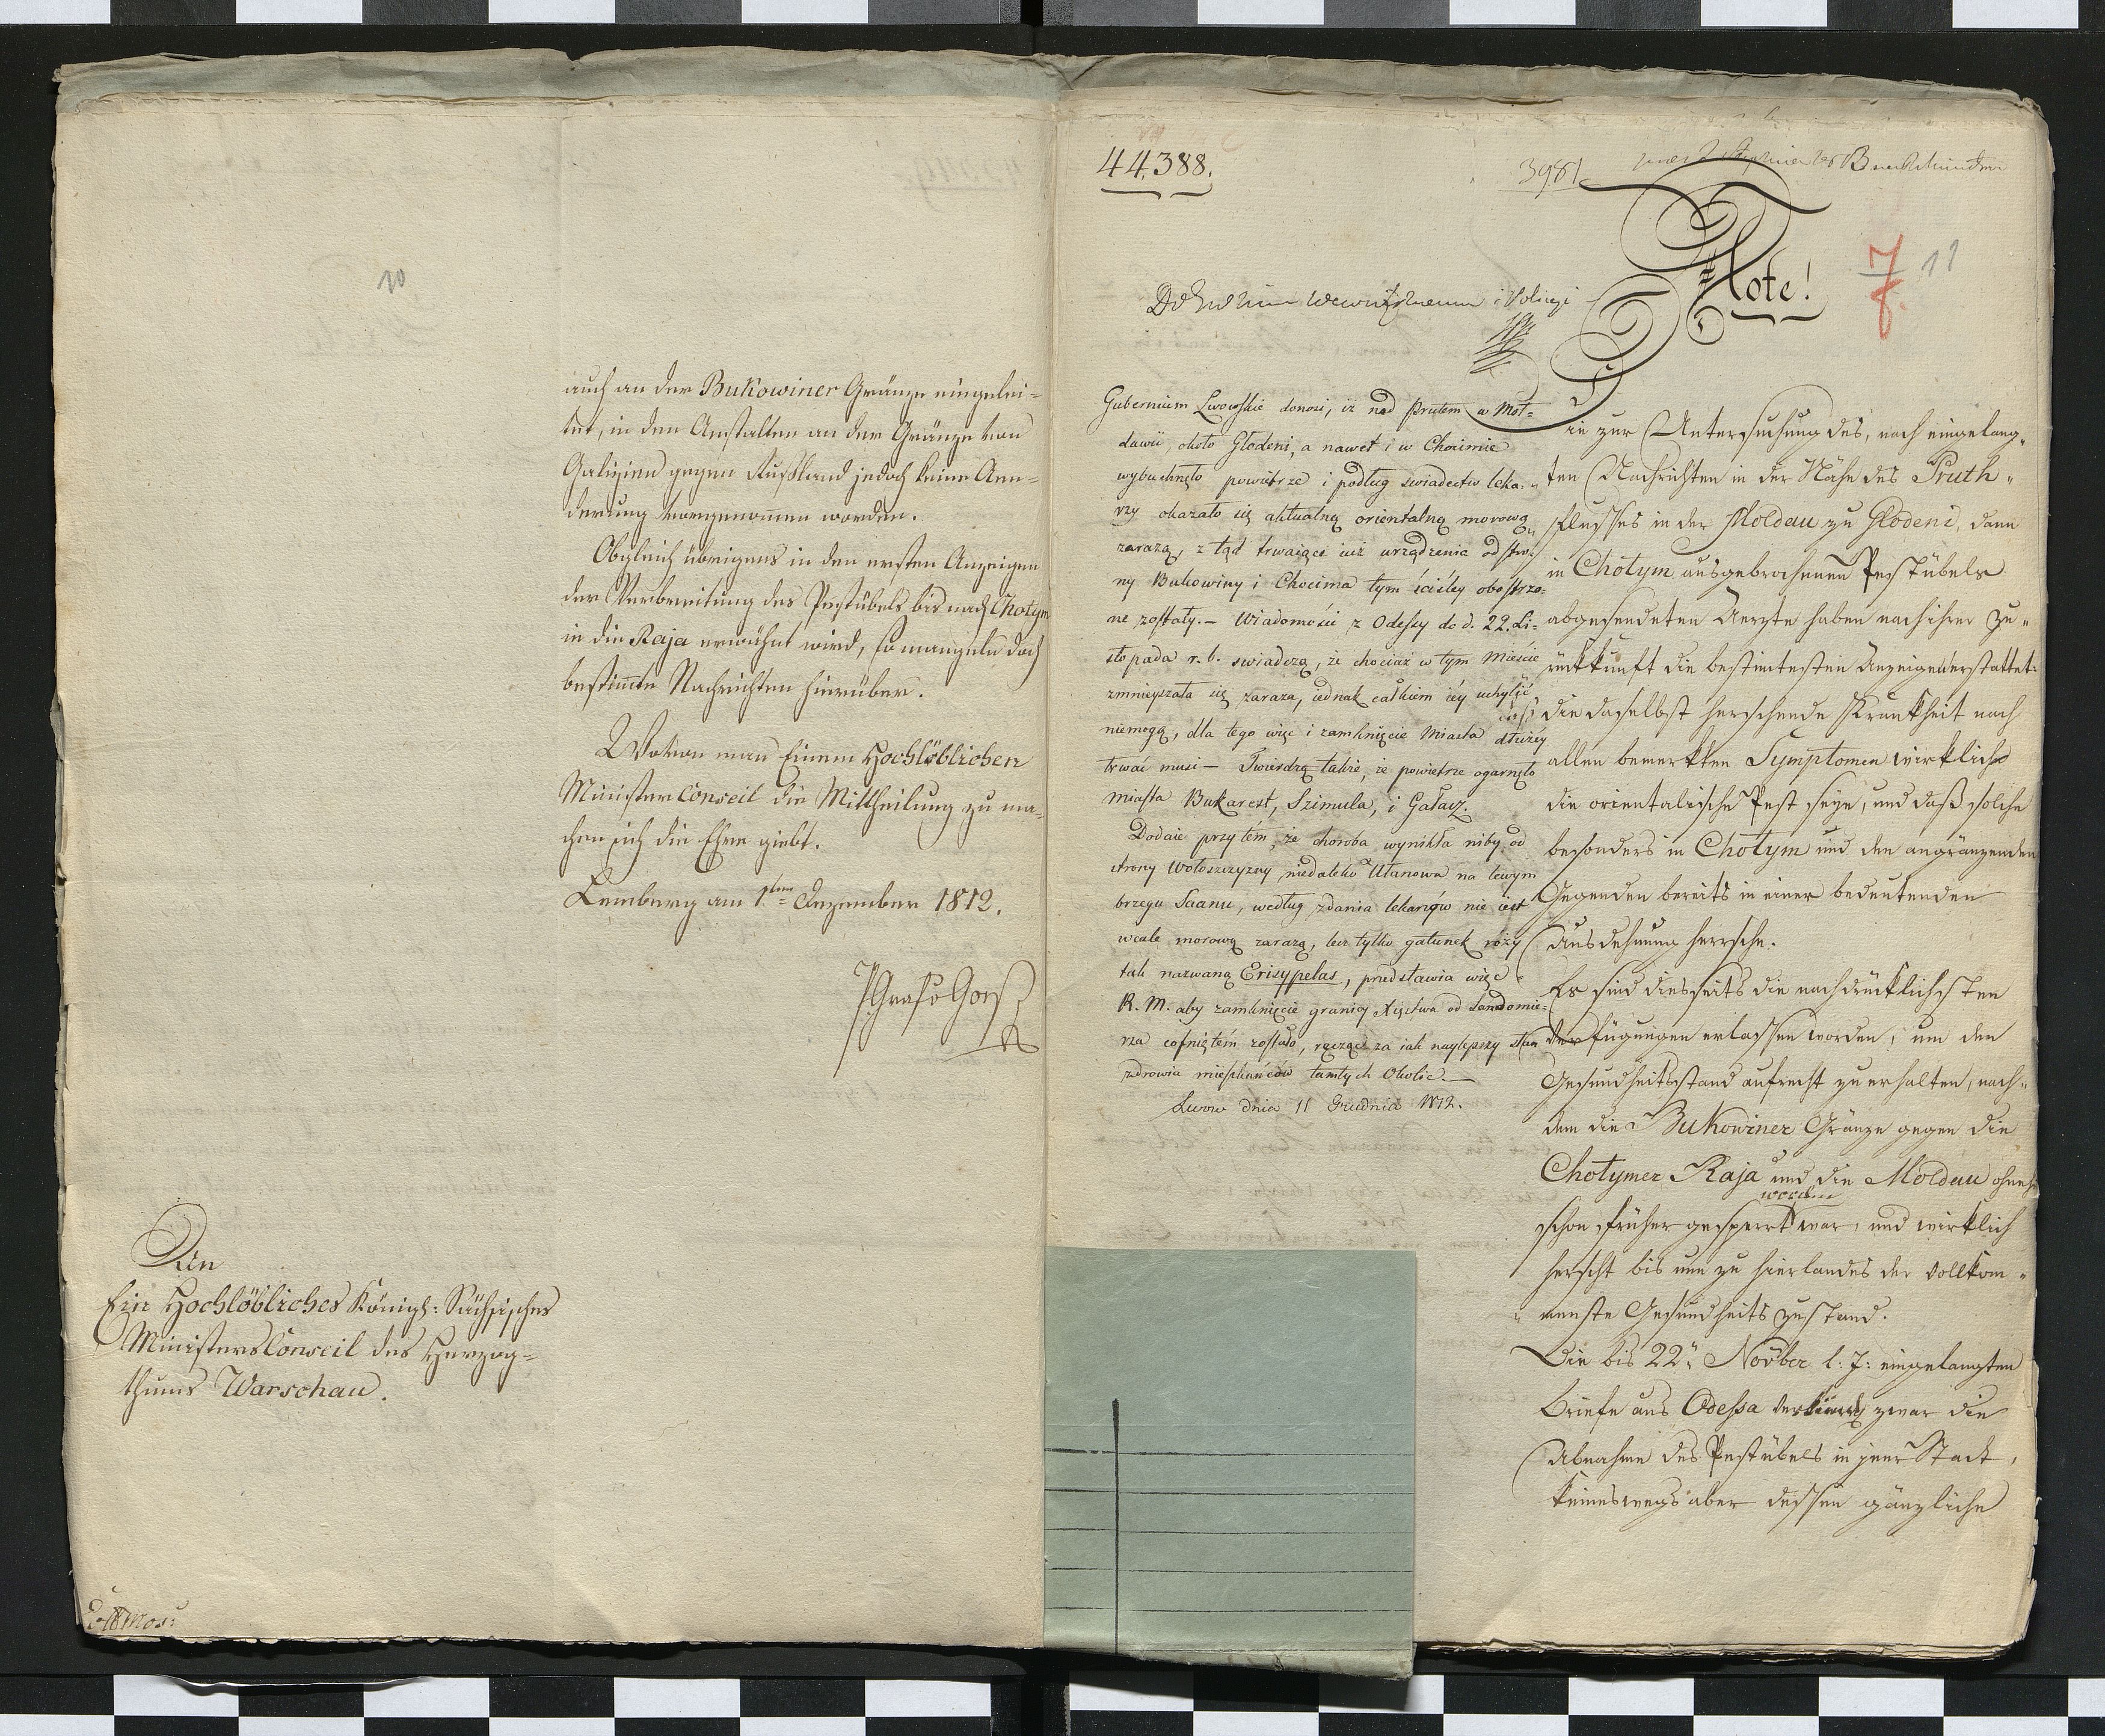 10
auch an der Bukowiner Gränze eingelei=
tet, in den Anstalten an der Gränze von
Galizien gegen Rußland jedoch keine Aen=
derung vorgenom̄en worden.
Obgleich übrigens in den ersten Anzeigen
der Verbreitung des Pestübels bis nach Chotym
in die Raja erwähnt wird, so mangeln doch
bestim̄te Nachrichten hierüber.
Wovon man Einem Hochlöblichen
Minister Conseil die Mittheilung zu ma=
chen sich die Ehre giebt.
Lemberg am 1ten Dezember 1812.
Graf v Goëß
An
Ein Hochlöbliches Königl: Sächsisches
Ministers Conseil des Herzog=
thums Warschau.
44,388.
3981
Note!
7
11
i Policyi
Gubernium Lwowskie donosi, iż nad Prutem w Moł=
dawii, około Głodeni, a nawet i w Chocimie
wybuchnęło powietrze i podług świadectw leka=
rzy okazało się aktualną orientalną morową
zarazą, z tąd trwaiące iuż urządzenia od stro=
ny Bukowiny i Chocima tym ściśley obostrzo=
ne zostały. – Wiadomości z Odessy do d. 22. Li=
stopada r. b. świadczą, że chociaż w tym Mieście
zmnieyszała się zaraza, iednak całkiem iéy uchylić
niemogą, dla tego więc i zamknięcie Miasta dłużéy
trwać musi – Twierdzą także, że powietrze ogarnęło
miasta Bukarest, Szimula, i Gałacz.
Dodaie przytém, że choroba wynikła niby od
strony Wołoszczyzny niedaleko Ulanowa na lewym
brzegu Saanu, według zdania lekarzów nie iest
wcale morową zarazą, lecz tylko gatunek róży
tak nazwaną Erisypelas, przedstawia więc
R. M. aby zamknięcie granicy Xięstwa od Sandomie=
rza cofniętém zostało, ręcząc za iak naylepszy stan
zdrowia mieszkańców tamtych Okolic. –
Lwow dnia 11 Grudnia 1812.
Die zur Untersuchung des, nach eingelang=
ten Nachrichten in der Nähe des Pruth=
flusses in der Moldau zu Glodeni, dann
in Chotym ausgebrochenen Pestübels
abgesendeten Aerzte haben nach ihrer Zu=
rückkunft die bestim̄testen Anzeigen erstattet:
daß die daselbst herschende Krankheit nach
allen bemerkten Symptomen wirklich
die orientalische Pest seye, und daß solche
besonders in Chotym und den angränzenden
Gegenden bereits in einer bedeutenden
Ausdehnung herrsche.
Es sind diesseits die nachdrücklichsten
Verfügungen erlassen worden, um den
Gesundheitsstand aufrecht zu erhalten, nach=
dem die Bukowiner Gränze gegen die
Chotymer Raja und die Moldau ohnehin
schon früher gesperrt worden war, und wirklich
herscht bis nun zu hierlandes der vollkom=
menste Gesundheitszustand.
Die bis 22n Nov̄ber l: J: eingelangten
Briefe aus Odessa zwar die
Abnahme des Pestübels in jener Stadt,
keineswegs aber dessen gänzliche